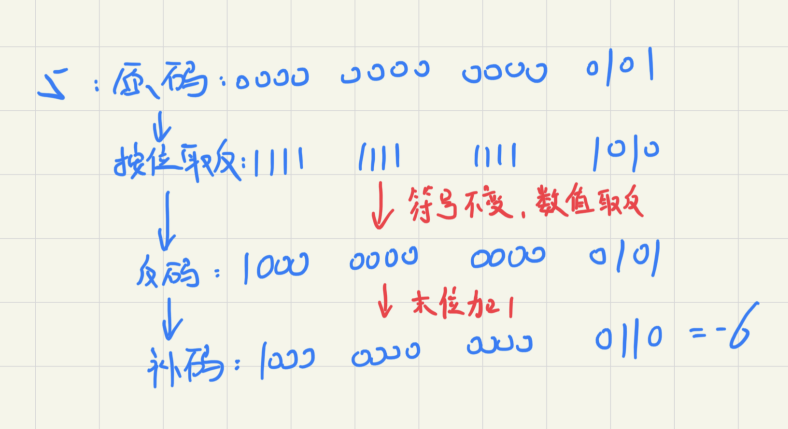 5：原码：0000 0000 0000 0101
按位取反：1111 1111 1111 1010
符号不变，数值取反
反码：1000 0000 0000 0101
末位加1
补码：1000 0000 0000 0110 = -6